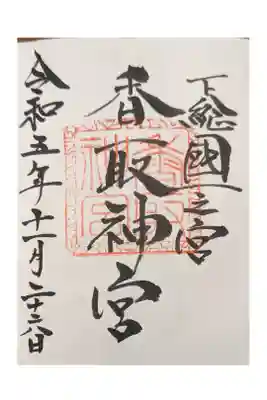 下総國一之宮
香取神宮
令和五年十一月二十六日